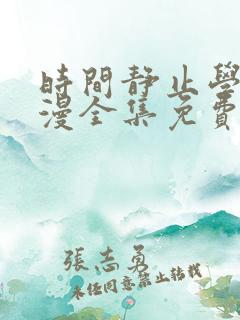 時間靜止學
漫全集免費
張志勇
未经同意禁止转载